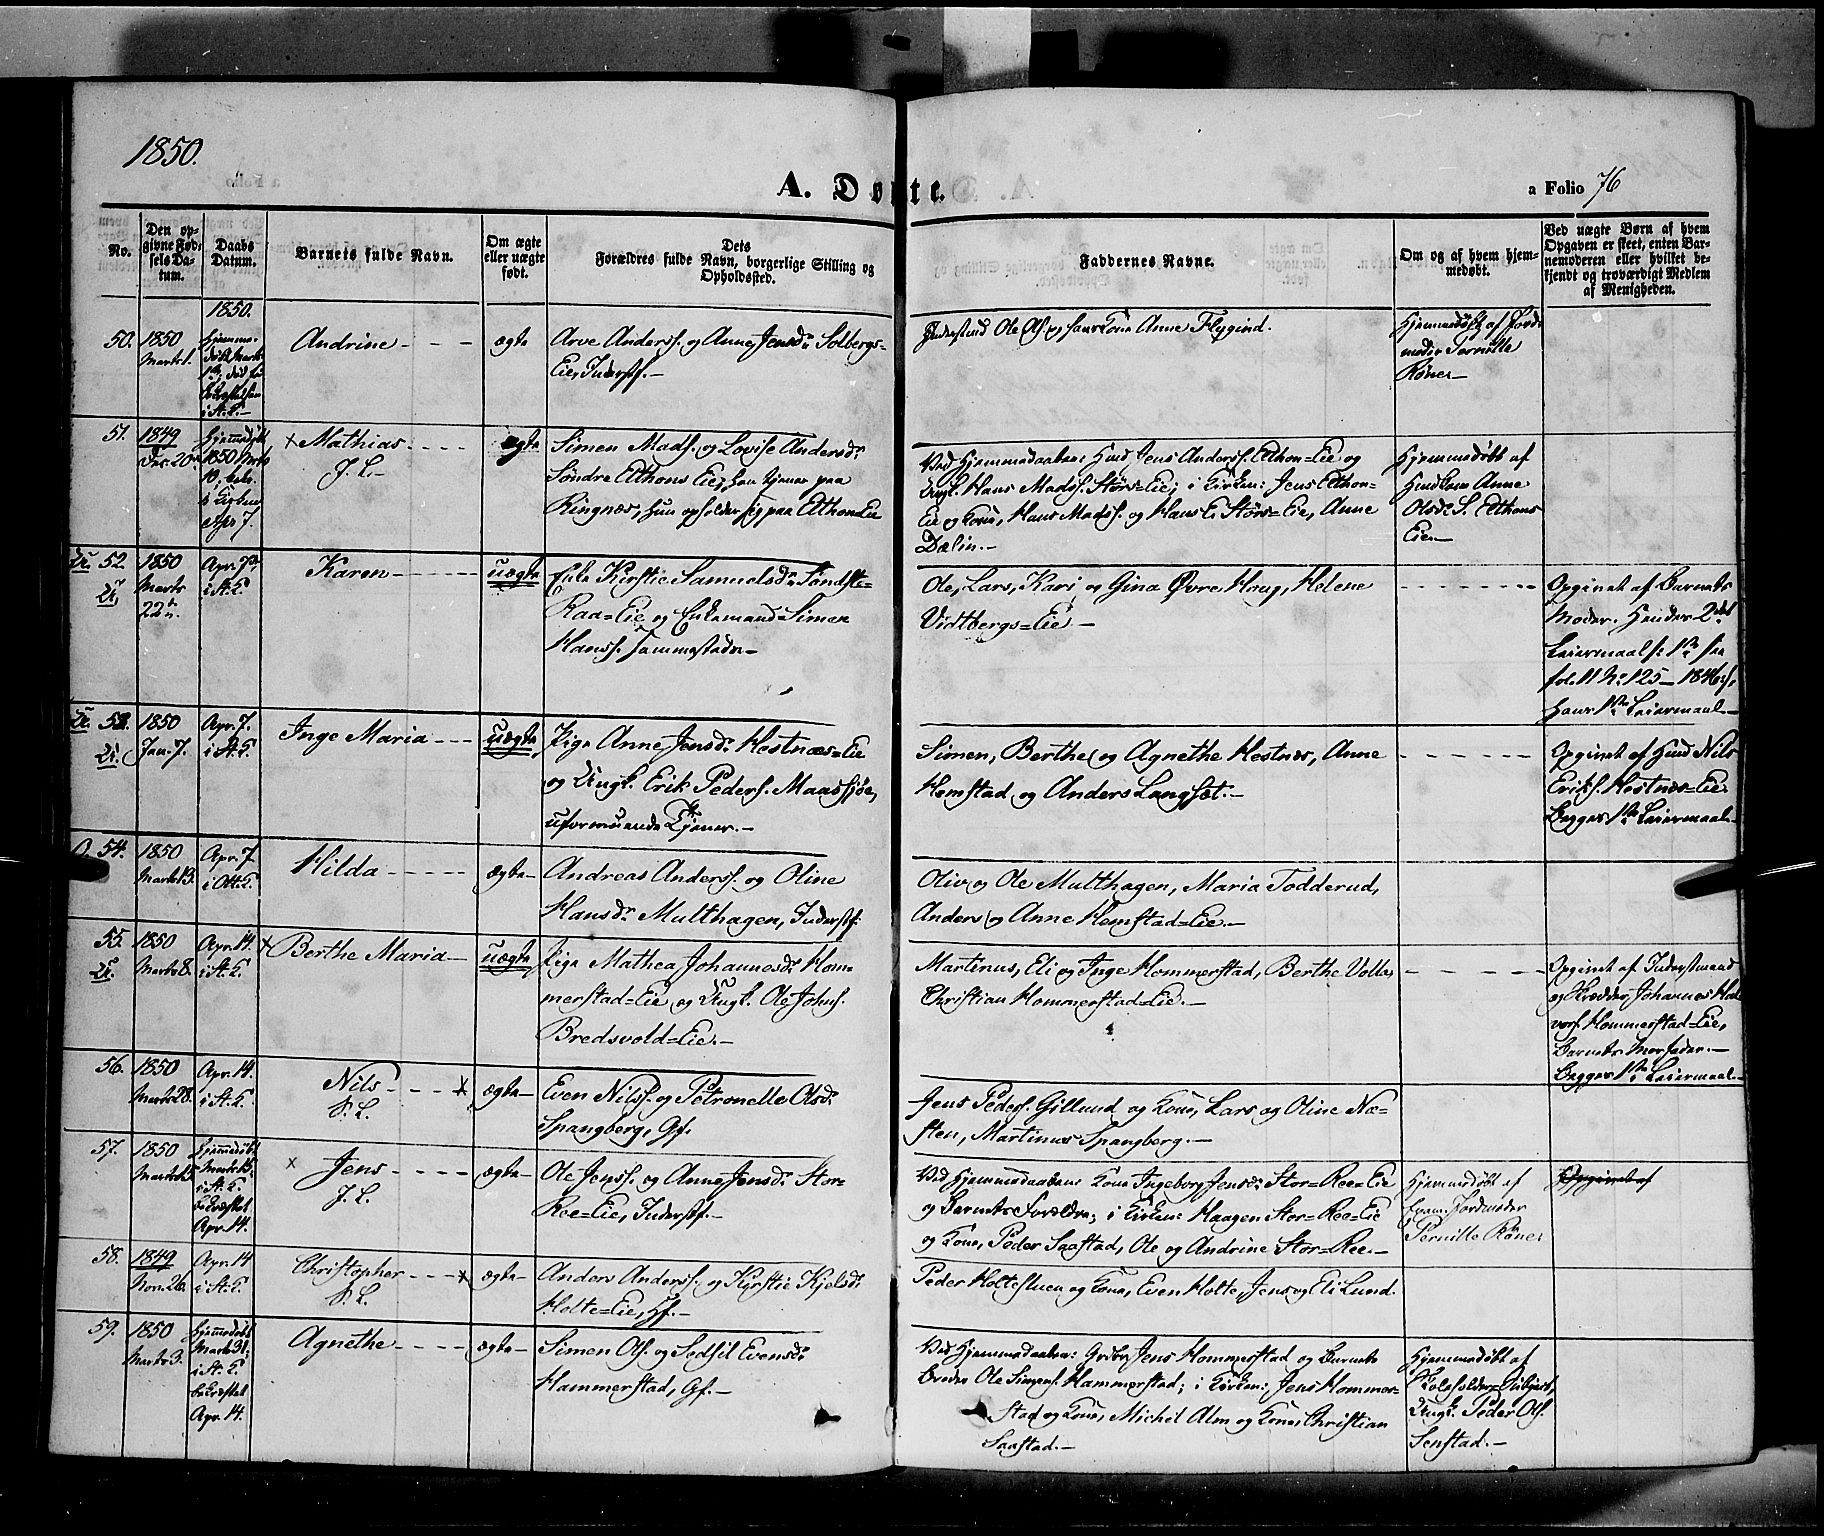 1850.
A. Døpte.
a Folio 76
No.
Den op-
givne Fød-
sels Da-
tum.
Daabs
Datum.
Barnets fulde Navn.
Om ægte
eller uægte
født.
Dets
Forældres fulde Navn, borgerlige Stilling og
Opholdssted.
Faddernes Navne.
Om og af hvem hjem-
medøbt.
Ved uægte Børn af hvem
Opgaven er skeet, enten Bar-
nemoderen eller hvilket be-
kjendt og troværdigt Medlem
af Menigheden.
1850.
50. 1850
Marts 1.
Andrine
ægte
Arve Anderss. og Anne Jensdr. Solbergs=
Eie, Inderstf.
Inderstmd Ole Ols. og hans Kone Anne Flygind.
Hjemmedøbt af Jord-
moder Pernille
Rønes
51. 1849
Dec. 20
Hjemmedøbt
1850 Marts
10, bekr.
i Kirken
Apr 7.
+ Mathias
J. L.
ægte
Simen Madss. og Lovise Andersdr.
Søndre Elthons Eie, han tjener paa
Ringnæs, hun opholder sig paa Elthon=Eie
Ved Hjemmedaaben: Husmd Jens Anderss. Elthon=Eie og
Ungk. Hans Madss. Størs=Eie; i Kirken: Jens Elthon=
Eie og Kone, Hans Madss. og Hans E. Størs=Eie, Anne
Dælin.
Hjemmedøbt af
Huskone Anne
Olsdr. S. Elthons
Eie.
U. 52. 1850
U. Marts
22de
Apr. 7de
i St. K.
Karen
uægte
Enke Kirstie Samuelsdr. Sondste=
Raa=Eie og Enkemand Simen
Hanss. Sammestads
Ole, Lars, Kari og Gina Øvre Houg, Helene
Vidtbergs=Eie
Opgivet af Barnets
Moder. Hendes 2det
Leiermaal
fol. 11 No. 125 1846
hans 1ste Leiermaal
U. 53. 1850
U. Jan. 7.
Apr. 7.
i St. K.
Inge Maria
uægte
Pige Anne Jensdr. Hestnæs=Eie
og Ungk. Erik Peders. Maassjøe,
uformuende Tjener.
Simen, Berthe og Agnethe Hestnæs, Anne
Hemstad og Anders Langsæt.
Opgivet af Husmd Nils
Eriks. Hestnæs=Eie
Begges 1ste Leiermaal
O. 54. 1850
Marts 13.
Apr. 7
i Ott. K.
Hilda
ægte
Andreas Anderss. og Oline
Hansdr. Multhagen, Inderstf.
Oliv og Ole Multhagen, Maria Todderud,
Anders og Anne Hemstad=Eie.
55. 1850
U. Marts 8.
Apr. 14.
i St. K.
+ Berthe Maria
uægte
Pige Mathea Johannesdr. Hom-
merstad=Eie og Ungk. Ole Johns.
Bredsvold=Eie.
Martinus, Eli og Inge Hommerstad, Berthe Volla,
Christian Hommerstad=Eie.
Opgivet af Inderstmand
og Skrædder Johannes Hal-
vors. Hommerstad=Eie,
Barnets Morfader.
Begges 1ste Leiermaal
56. 1850
Marts 28.
Apr. 14.
i St. K.
Nils
S. L.
ægte
Even Nilss. og Petronelle Olsdr.
Spangberg, Gf.
Jens Peders. Gillund og Kone, Lars og Oline Næ-
sten, Martinus Spangberg.
57. 1850
Marts 13
Hjemmedøbt
Marts 15
i St. K.
bekræftet
Apr. 14.
x Jens
J. L.
ægte
Ole Jenss. og Anne Jensdr. Stor-
Ree=Eie, Inderstf.
Ved Hjemmedaaben: Kone Ingeborg Jensdr. Stor=Ree=Eie
og Barnets Forældre; i Kirken: Haagen Stor=Ree=Eie
og Kone, Peder Saastad, Ole og Andrine Stor=Ree.
Hjemmedøbt af
Exam. Jordmoder
Pernille Rønes
Opgivet af
58. 1849
Nov. 26.
Apr. 14
i St. K.
Christopher
S. L.
ægte
Anders Anderss. og Kyrstie Kjelsdr.
Holte=Eie, Hf.
Peder Holtestuen og Kone, Even Holte, Jens og Eli Lund.
59. 1850
Marts 3.
Hjemmedøbt
Marts 31,
i St. K.
bekræftet
Apr. 14.
Agnethe
ægte
Simen Ols. og Sedsil Evensdr.
Hammerstad, Gf.
Ved Hjemmedaaben: Grdbr. Jens Hommerstad og Barnets
Broder Ole Simens. Hammerstad; i Kirken: Jens Hommer-
stad og Kone, Michel Alm og Kone, Christian
Saastad.
Hjemmedøbt af
Skoleholder=Substitut,
Ungk. Peder Ols.
Senstad.